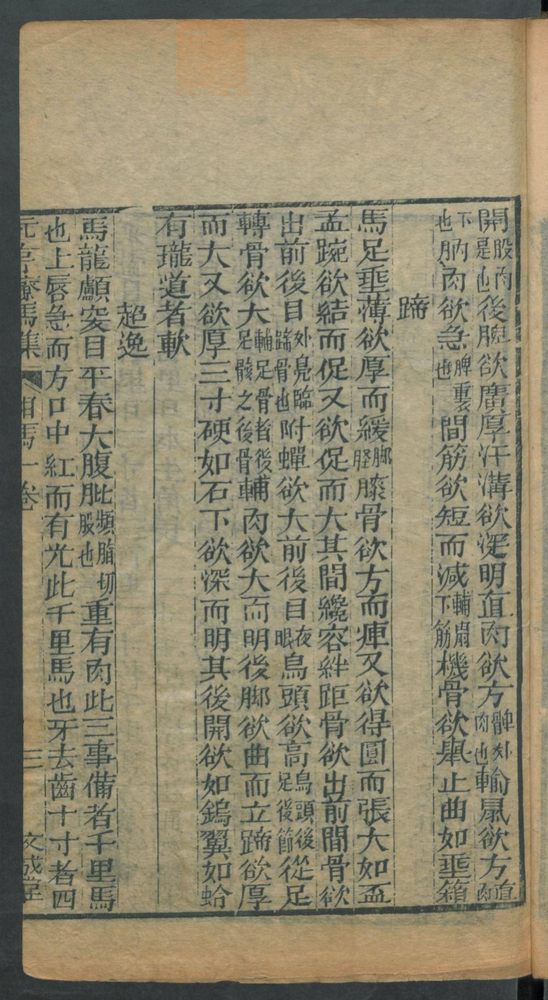 開股肉是也後髀欲廣厚汗溝欲深明直肉欲方髀外肉也輸鼠欲方直肉
下肭肉欲急髀裏也間筋欲短而減輔肩下筋機骨欲舉上曲如垂箱
蹄
馬足垂薄欲厚而緩脚脛膝骨欲方而庳又欲得圓而張大如盃
盂踠欲結而促又欲促而大其間纔容絆距骨欲出前間骨欲
出前後目外鳧臨蹄骨也附蟬欲大前後目夜眼烏頭欲高烏頭後足後節從足
轉骨欲大輔足骨者後足骸之後骨輔肉欲大而明後脚欲曲而立蹄欲厚
而大又欲厚三寸硬如石下欲深而明其後開欲如鎢翼如蛤
有瓏道者軟
超逸
馬龍顱突目平脊大腹肶重有肉此三事備者千里馬
也上唇急而方口中紅而有光此千里馬也牙去齒十寸者四
元亨療馬集 相馬一卷 三 文成堂